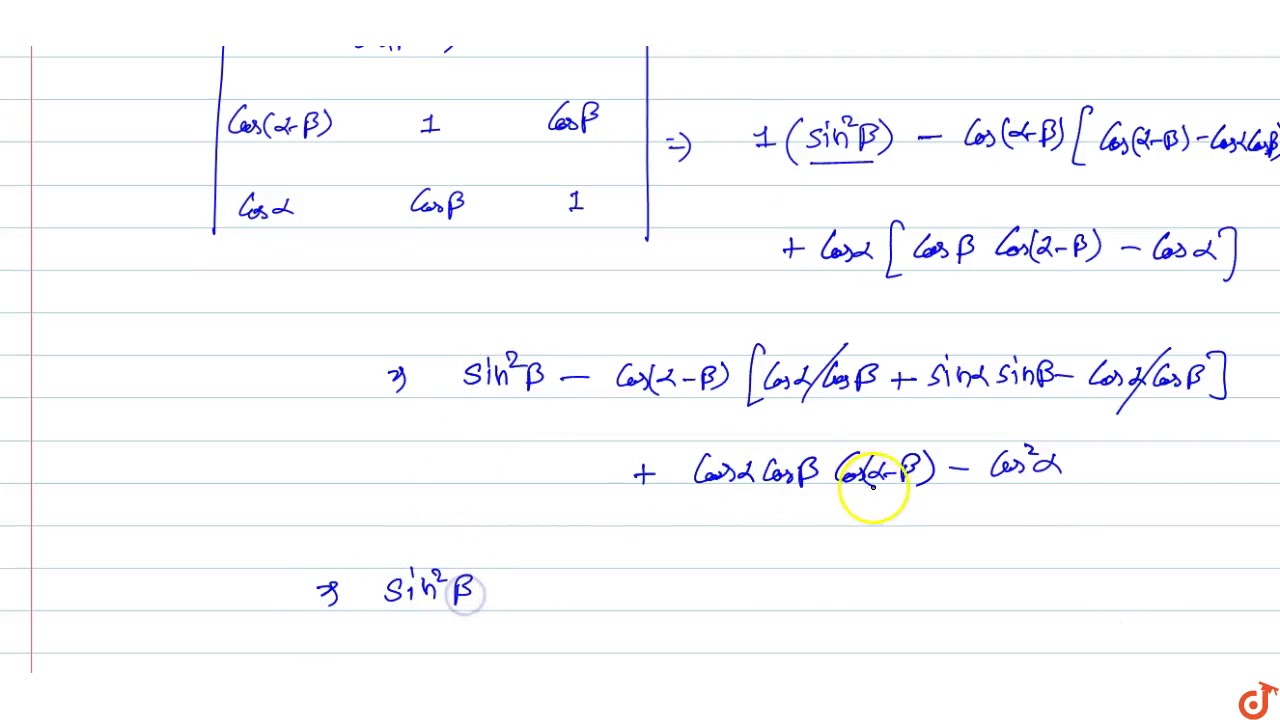 Cos(α-β) 1 Cosβ
⇒ 1 (sin²β) - Cos(α-β) [Cos(α-β) - Cosα Cosβ
Cosα Cosβ 1
+ Cosα [Cosβ Cos(α-β) - Cosα]
⇒ Sin²β - Cos(α-β) [Cosα Cosβ + sinα sinβ - Cosα Cosβ]
+ Cosα Cosβ Cos(α-β) - Cos²α
⇒ Sin²β